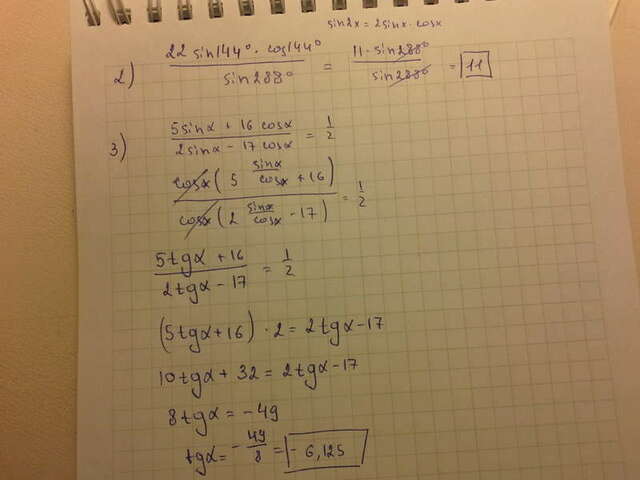 sin2x = 2sinx · cosx
2) (22 sin144° · cos144°)/(sin288°) = (11 · sin288°)/(sin288°) = 11
3) (5sinα + 16 cosα)/(2sinα - 17 cosα) = 1/2
(cosα(5 sinα/cosα + 16))/(cosα(2 sinα/cosα - 17)) = 1/2
(5tgα + 16)/(2tgα - 17) = 1/2
(5tgα + 16) · 2 = 2tgα - 17
10tgα + 32 = 2tgα - 17
8tgα = -49
tgα = -49/8 = -6,125